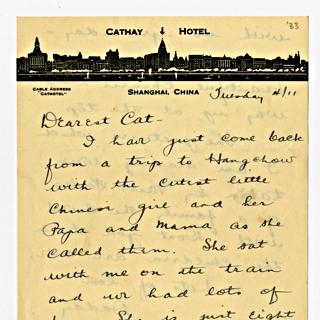 '33
CATHAY HOTEL
CABLE ADDRESS
"CATHOTEL"
SHANGHAI, CHINA
Tuesday 4/11
Dearest Cat-
I have just come back
from a trip to Hangchow
with the cutest little
Chinese girl and her
Papa and Mama as she
called them. She sat
with me on the train
and we had lots of
She is just eight